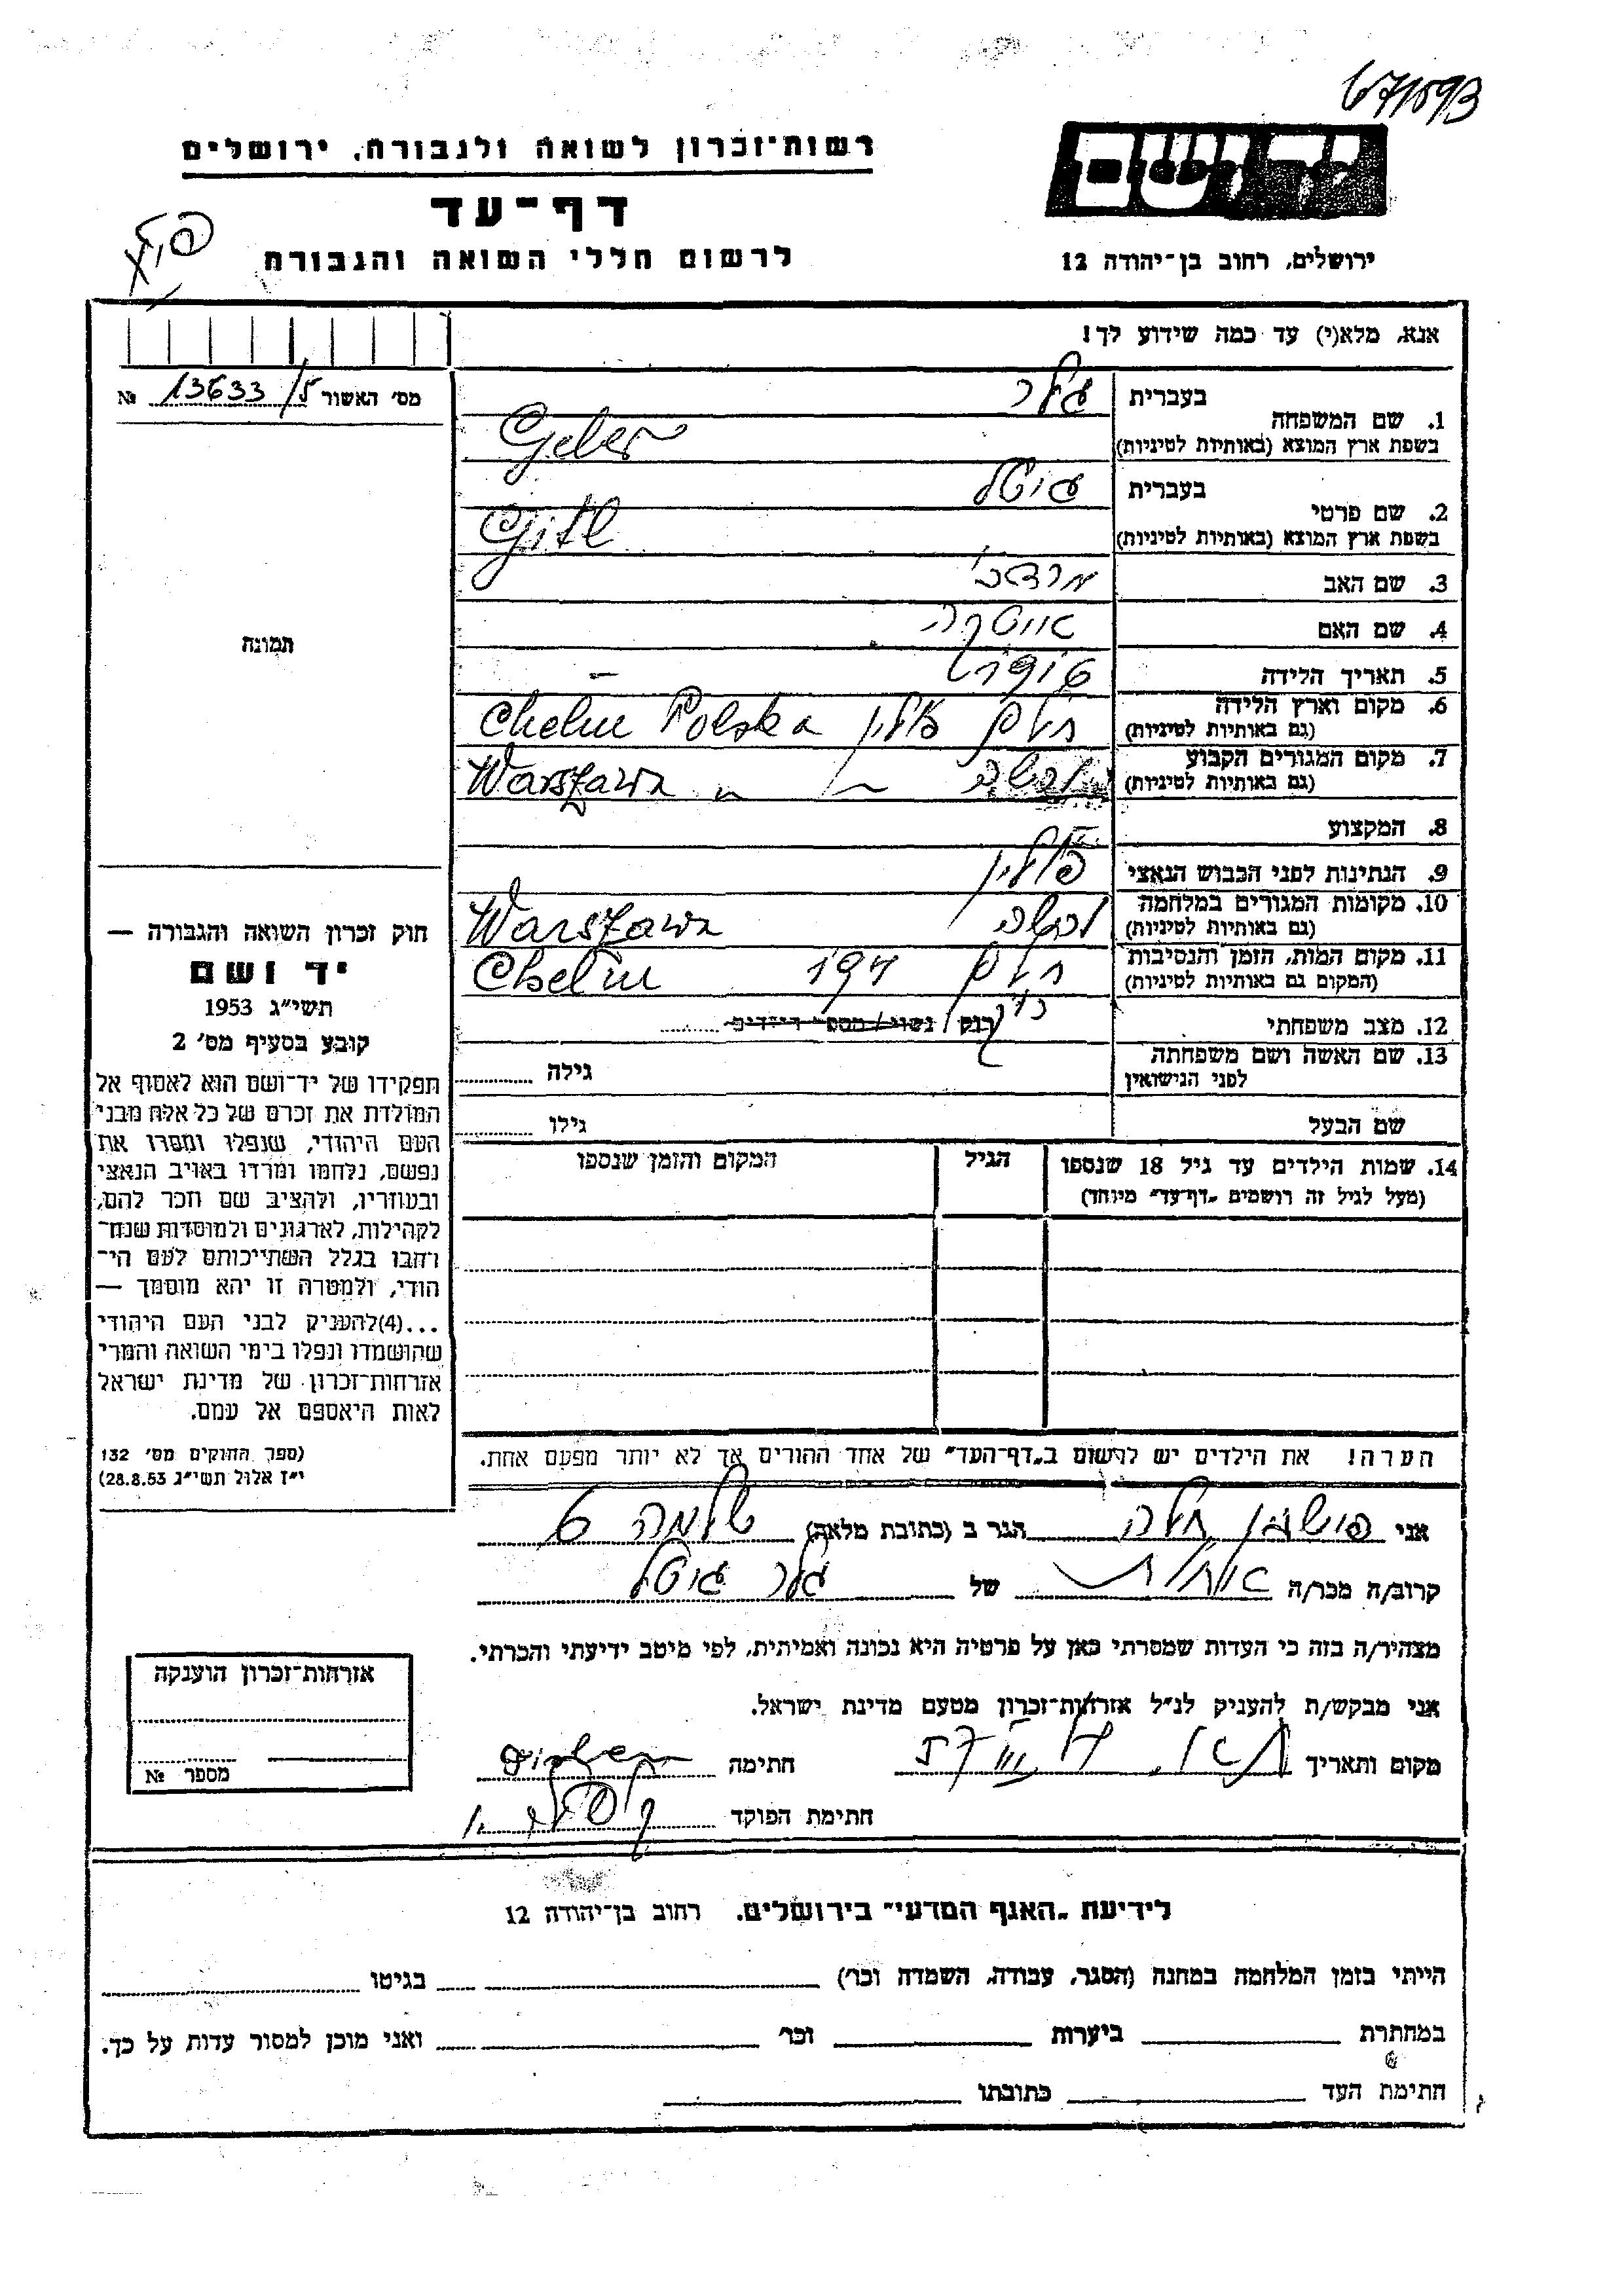 רשות־זכרון לשואה ולגבורה, ירושלים
יד ושם
דף־עד
לרשום חללי השואה והגבורה
ירושלים, רחוב בן־יהודה 12
אנא, מלא(י) עד כמה שידוע לך!
מס׳ האשור 13633/5 №
תמונה
1. שם המשפחה
בעברית גלר
בשפת ארץ המוצא (באותיות לטיניות) Geler
2. שם פרטי
בעברית גיטל
בשפת ארץ המוצא (באותיות לטיניות) Gitl
3. שם האב מרדכי
4. שם האם
5. תאריך הלידה
6. מקום וארץ הלידה חלם פולין Chelm Polska
(גם באותיות לטיניות)
7. מקום המגורים הקבוע ורשה Warszawa
(גם באותיות לטיניות)
8. המקצוע
9. הנתינות לפני הכבוש הנאצי פולין
10. מקומות המגורים במלחמה ורשה Warszawa
(גם באותיות לטיניות)
11. מקום המות, הזמן והנסיבות חלם 194 Chelm
(המקום גם באותיות לטיניות)
12. מצב משפחתי רוק / נשוי / מספר הילדים
13. שם האשה ושם משפחתה
לפני הנישואין
גילה
שם הבעל
גילו
14. שמות הילדים עד גיל 18 שנספו
(מעל לגיל זה רושמים „דף־עד״ מיוחד)
הגיל
המקום והזמן שנספו
הערה! את הילדים יש לרשום ב„דף־העד״ של אחד ההורים אך לא יותר מפעם אחת.
חוק זכרון השואה והגבורה —
יד ושם
תשי״ג 1953
קובע בסעיף מס׳ 2
תפקידו של יד־ושם הוא לאסוף אל
המולדת את זכרם של כל אלה מבני
העם היהודי, שנפלו ומסרו את
נפשם, נלחמו ומרדו באויב הנאצי
ובעוזריו, ולהציב שם וזכר להם,
לקהילות, לארגונים ולמוסדות שנח־
רבו בגלל השתייכותם לעם הי־
הודי, ולמטרה זו יהא מוסמך —
...(4) להעניק לבני העם היהודי
שהושמדו ונפלו בימי השואה והמרי
אזרחות־זכרון של מדינת ישראל
לאות היאספם אל עמם.
(ספר החוקים מס׳ 132
י״ז אלול תשי״ג 28.8.53)
אני חיה הגר ב (כתובת מלאה) שלמה 6
קרוב/ה מכר/ה אחות של גלר גיטל
מצהיר/ה בזה כי העדות שמסרתי כאן על פרטיה היא נכונה ואמיתית, לפי מיטב ידיעתי והכרתי.
אני מבקש/ת להעניק לנ״ל אזרחות־זכרון מטעם מדינת ישראל.
מקום ותאריך
חתימה
חתימת הפוקד
אזרחות־זכרון הוענקה
מספר №
לידיעת „האגף המדעי״ בירושלים. רחוב בן־יהודה 12
הייתי בזמן המלחמה במחנה (הסגר, עבודה, השמדה וכו׳) בגיטו
במחתרת ביערות וכו׳ ואני מוכן למסור עדות על כך.
חתימת העד כתובתו